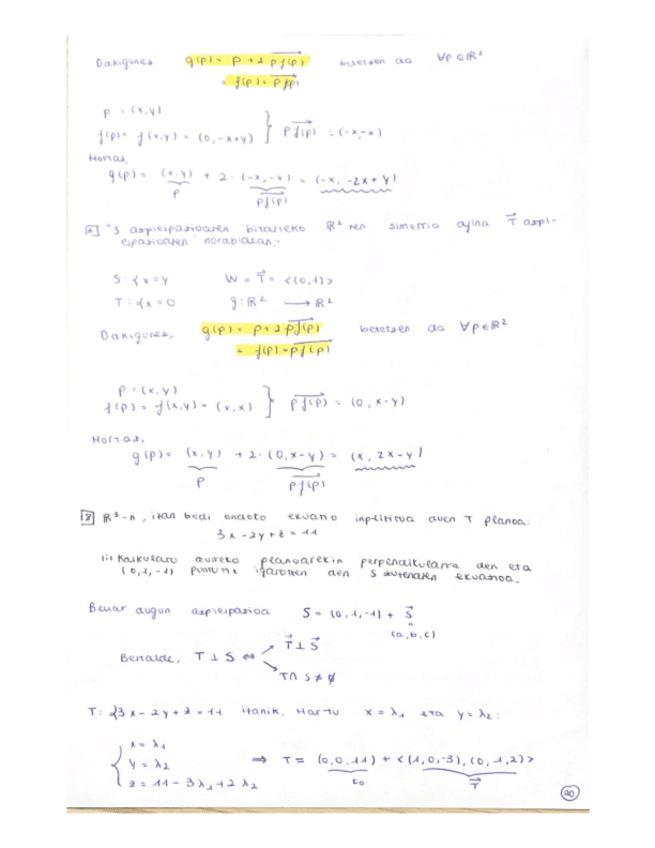 Dakigunez g(p) = p + 2 pf(p) betetzen da ∀p∈ℝ²
= f(p) + pf(p)
p = (x,y)
f(p) = f(x,y) = (0, -x+y) } pf(p) = (-x,-x)
Hortaz,
g(p) = (x,y) + 2·(-x,-x) = (-x, -2x+y)
p pf(p)
"S azpiespazioaren bitarteko ℝ² ren simetria afina T azpi-
espazioaren norabidean:
S: {x=y W = T = <(0,1)>
T: {x=0 g: ℝ² → ℝ²
Dakigunez, g(p) = p+2pf(p) betetzen da ∀p∈ℝ²
= f(p)+pf(p)
p = (x,y)
f(p) = f(x,y) = (x,x) } pf(p) = (0, x-y)
Hortaz,
g(p) = (x,y) + 2·(0,x-y) = (x, 2x-y)
p pf(p)
18 ℝ³-n, izan bedi ondoko ekuazio inplizitua duen T planoa:
3x-2y+z=11
(i) Kalkulatu aurreko planoarekin perpendikularra den eta
(0,1,-1) puntutik igarotzen den S zuzenaren ekuazioa.
Behar dugun azpiespazioa S = (0,1,-1) + S
(a,b,c)
Bestalde, T⊥S ⇔ T⊥S
T∩S≠∅
T: {3x-2y+z=11 izanik. Hartu x=λ₁ eta y=λ₂:
x=λ₁
y=λ₂ ⇒ T = (0,0,11) + <(1,0,-3),(0,1,2)>
z=11-3λ₁+2λ₂ t₀ T
20